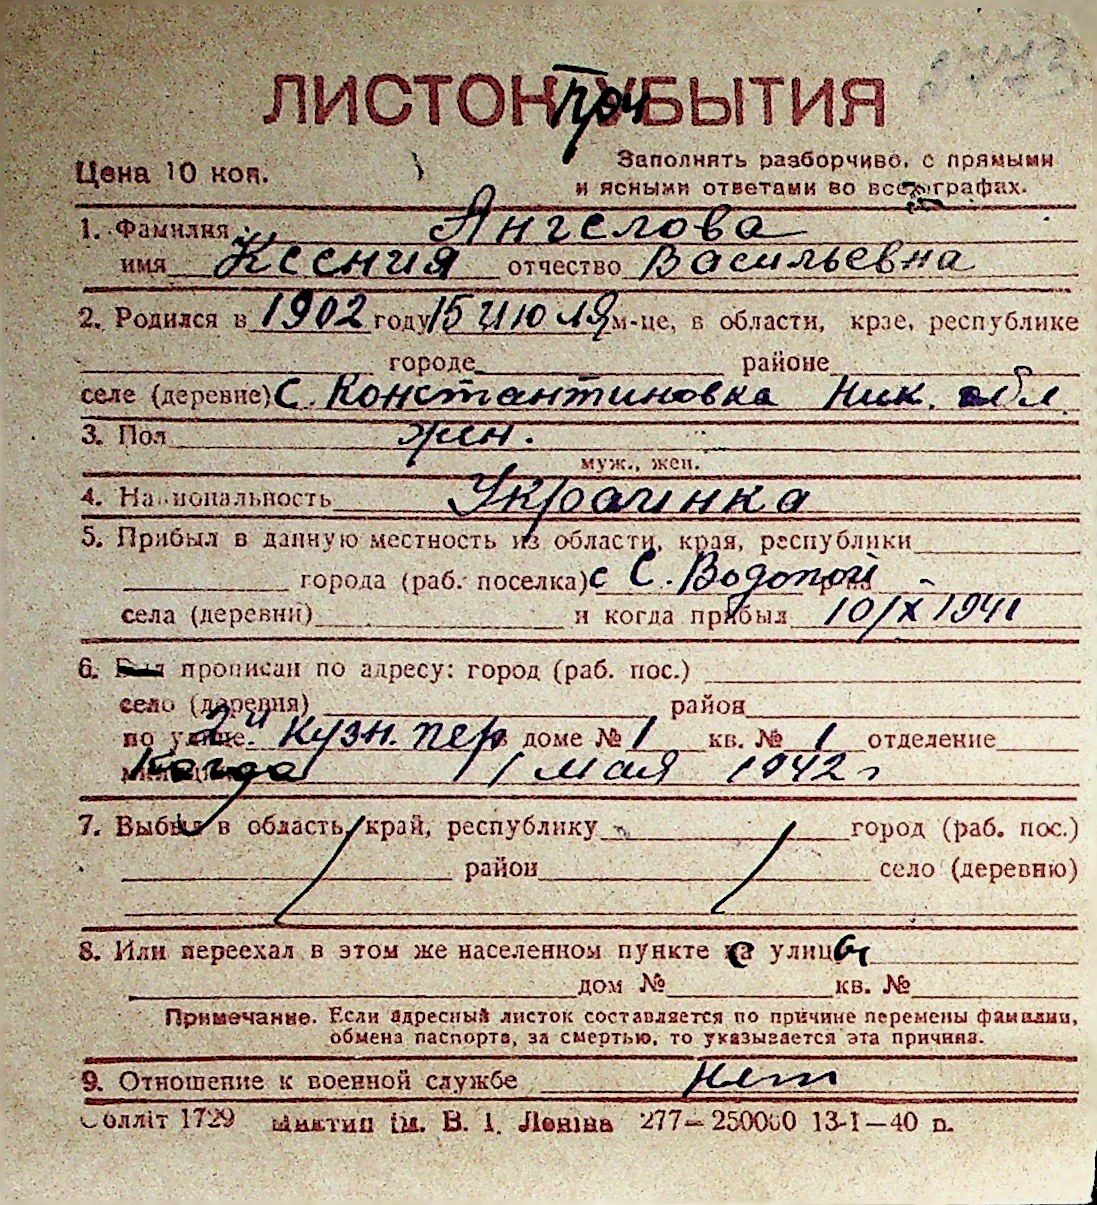 ЛИСТОК ПрУБЫТИЯ
Цена 10 коп.
Заполнять разборчиво, с прямыми
и ясными ответами во всех графах.
1. Фамилия Ангелова
имя Ксения отчество Васильевна
2. Родился в 1902 году 15 июля м-це, в области, крае, республике
городе районе
селе (деревне) с. Константиновка Ник. обл.
3. Пол жен.
муж., жен.
4. Национальность Украинка
5. Прибыл в данную местность из области, края, республики
города (раб. поселка) с С. Водопой
села (деревни) и когда прибыл 10/X 1941
6. прописан по адресу: город (раб. пос.)
село (деревня) район
по улице 2й Кузн. пер в доме № 1 кв. № 1 отделение
Когда 1 мая 1942 г
7. Выбыл в область, край, республику город (раб. пос.)
район село (деревню)
8. Или переехал в этом же населенном пункте с улицы
дом № кв. №
Примечание. Если адресный листок составляется по причине перемены фамилии,
обмена паспорта, за смертью, то указывается эта причина.
9. Отношение к военной службе нет
Облліт 1729 ім. В. І. Леніна 277—250000 13-1—40 п.